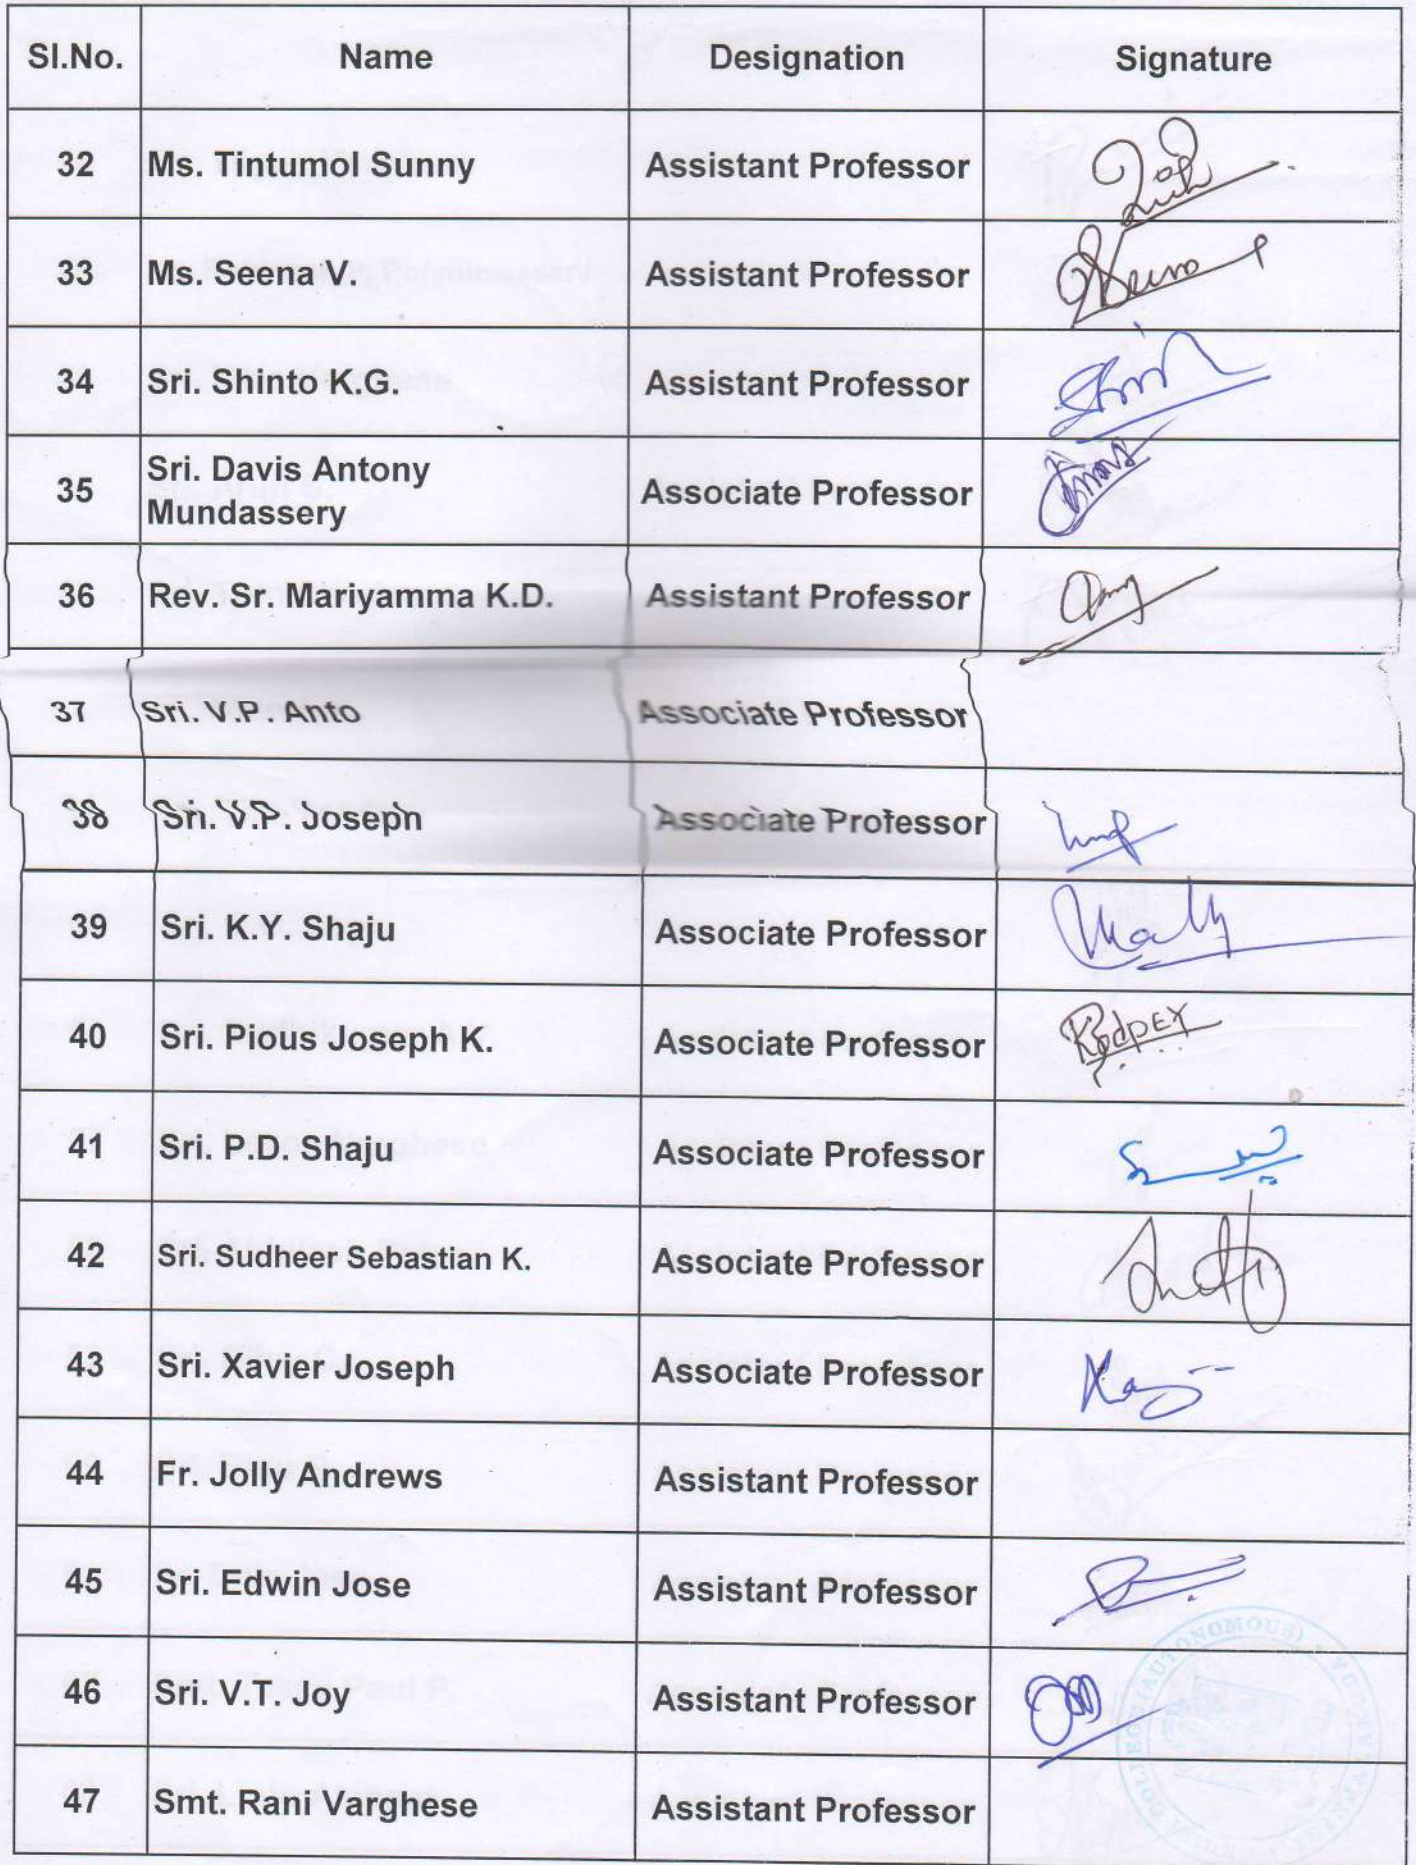 Sl.No. Name Designation Signature
32 Ms. Tintumol Sunny Assistant Professor
33 Ms. Seena V. Assistant Professor
34 Sri. Shinto K.G. Assistant Professor
35 Sri. Davis Antony Mundassery Associate Professor
36 Rev. Sr. Mariyamma K.D. Assistant Professor
37 Sri. V.P. Anto Associate Professor
38 Sri. V.P. Joseph Associate Professor
39 Sri. K.Y. Shaju Associate Professor
40 Sri. Pious Joseph K. Associate Professor
41 Sri. P.D. Shaju Associate Professor
42 Sri. Sudheer Sebastian K. Associate Professor
43 Sri. Xavier Joseph Associate Professor
44 Fr. Jolly Andrews Assistant Professor
45 Sri. Edwin Jose Assistant Professor
46 Sri. V.T. Joy Assistant Professor
47 Smt. Rani Varghese Assistant Professor